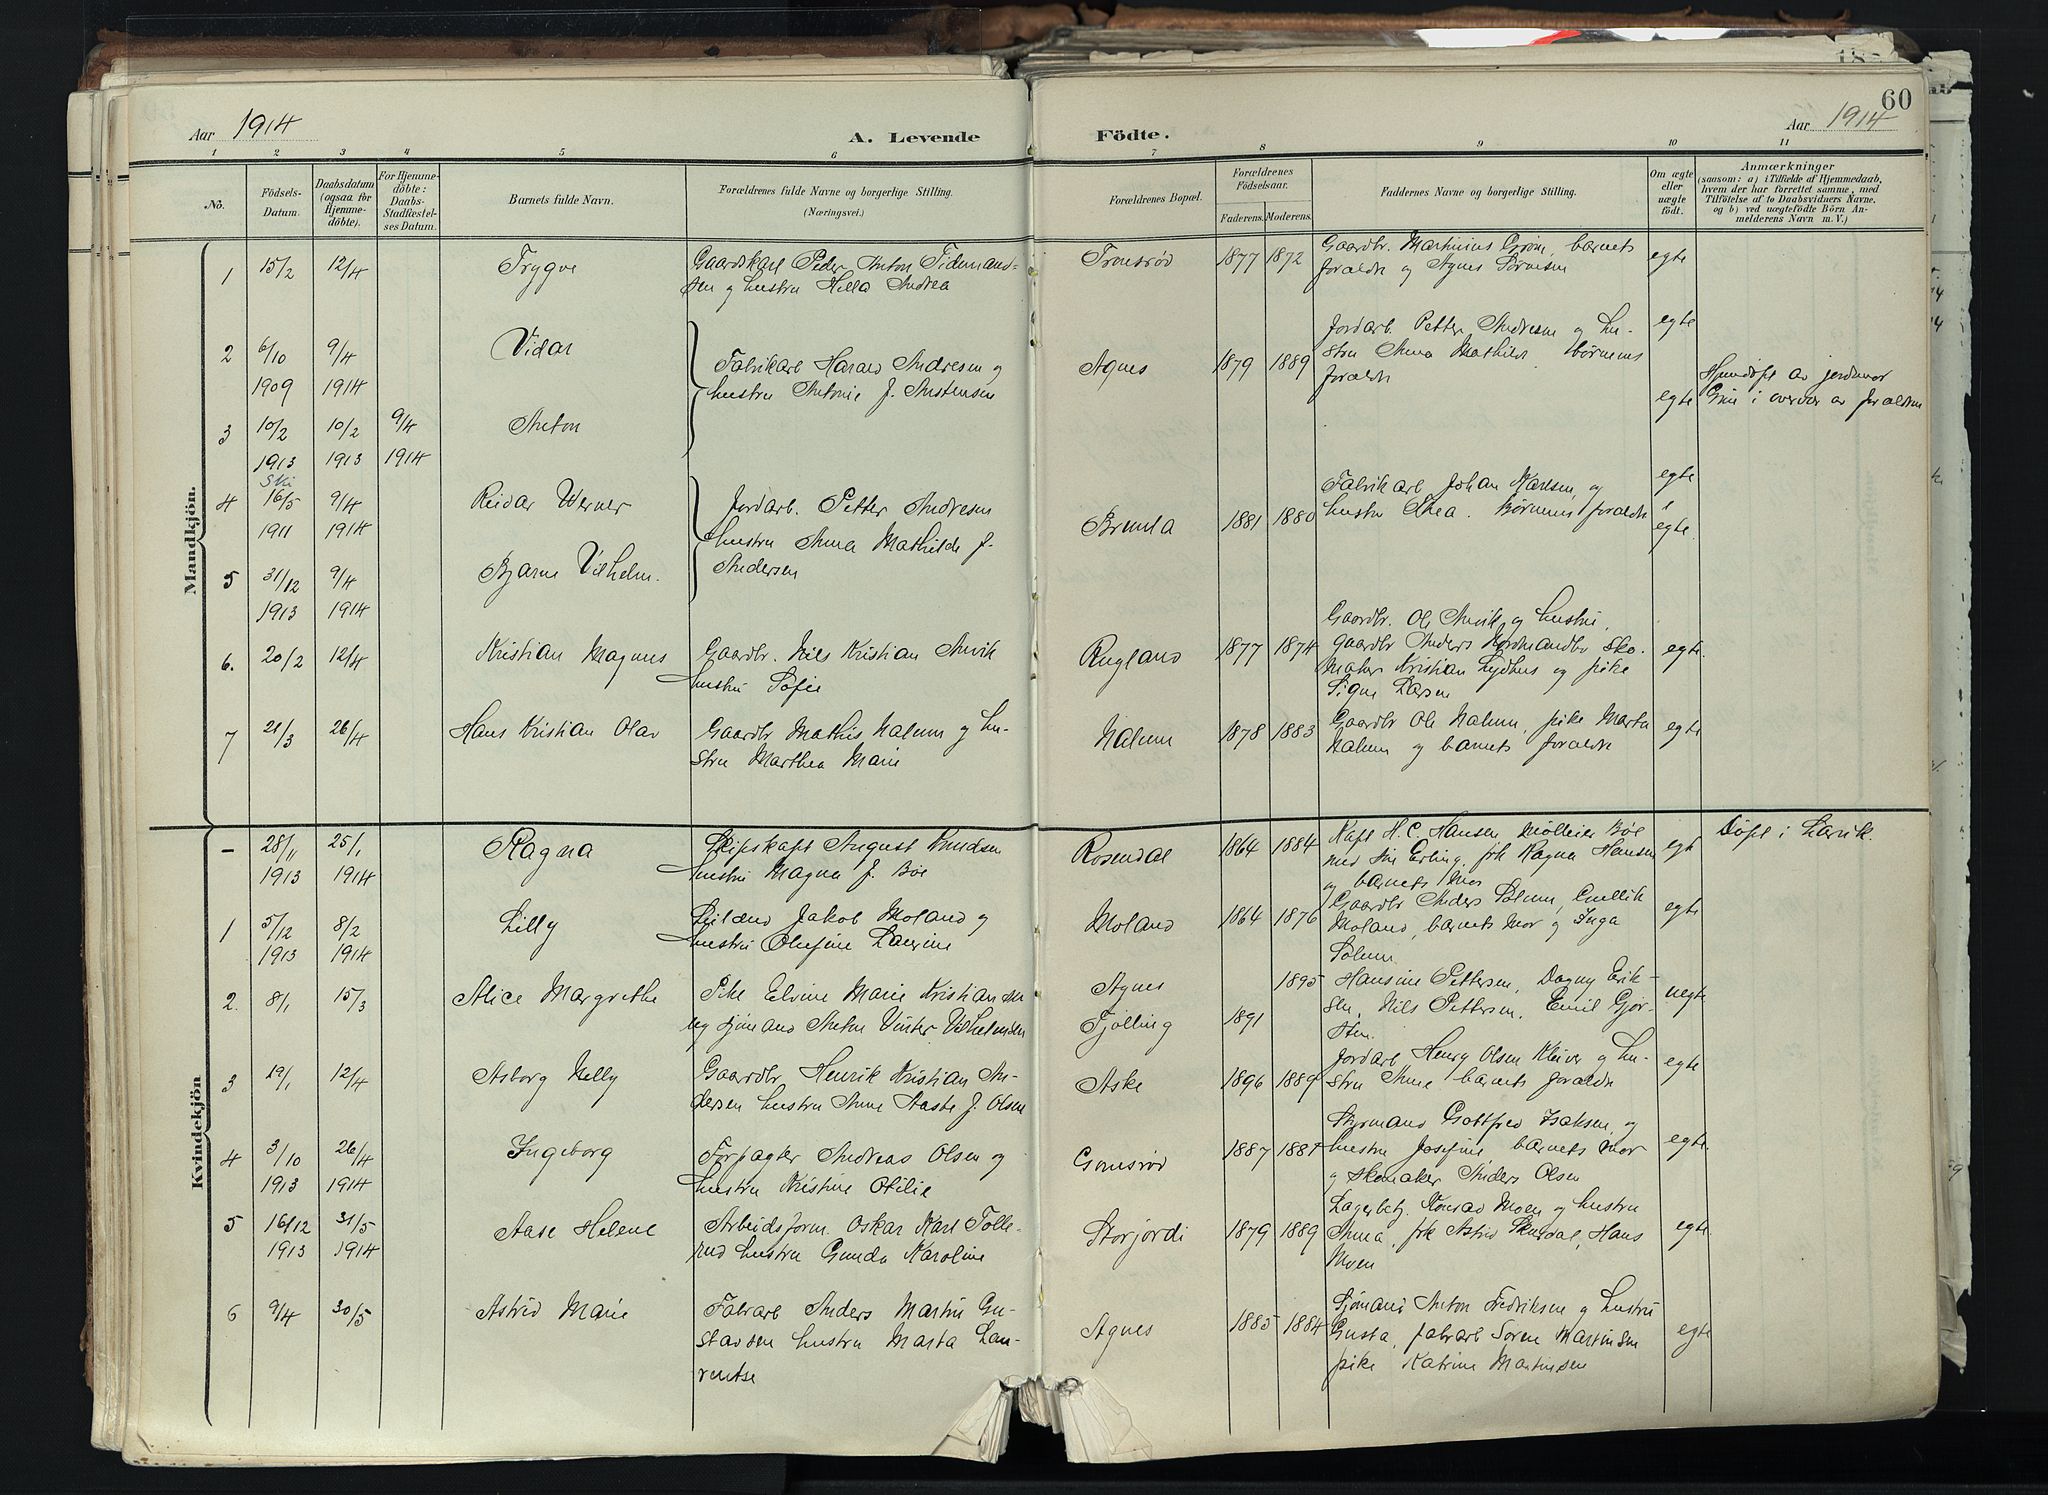 60
Aar 1914
A. Levende
Födte.
Aar 1914
1 2 3 4 5 6 7 8 9 10 11
No.
Födsels-
Datum.
Daabsdatum
(ogsaa for
Hjemme-
döbte).
For Hjemme-
döbte:
Daabs-
Stadfæstel-
ses Datum.
Barnets fulde Navn.
Forældrenes fulde Navne og borgerlige Stilling.
(Næringsvei.)
Forældrenes Bopæl.
Forældrenes
Födselsaar.
Faderens. Moderens.
Faddernes Navne og borgerlige Stilling.
Om ægte
eller
uægte
födt.
Anmærkninger
(saasom: a) i Tilfælde af Hjemmedaab,
hvem der har forrettet samme, med
Tilföielse af to Daabsvidners Navne,
og b) ved uægtefödte Börn An-
melderens Navn m. V.)
Mandkjön.
1 15/2 12/4 Trygve
Gaardskarl Peder Anton Tidemand-
sen og hustru Hella Andrea
Tronsrød 1877 1872
Gaardbr. Martinius Grøn, barnets
foraldre og Agnes Sørensen
egte
2 6/10 1909 9/4 1914 Vidar
Fabrikarb Harald Andresen og
hustru Antonie f. Austensen
Agnes 1879 1889
Jordarb. Petter Andresen og hu-
stru Anna Mathilde Børnenes
foraldre
egte
3 10/2 1913 10/2 1913 9/4 1914 Anton
egte
Hjemdøpt av jordmor
Grøn i overvær av foraldrene
4 Ski 16/5 1911 9/4 1914 Reidar Werner
Jordarb. Petter Andresen
hustru Anna Mathilde f.
Andersen
Brunla 1881 1880
Fabrikarb Johan Karlsen og
hustru Thea. Børnenes foraldre
egte
5 31/12 1913 9/4 1914 Bjarne Vilhelm.
egte
6. 20/2 12/4 Kristian Magnus
Gaardbr. Nils Kristian Anvik
hustru Sofie
Rugland 1877 1874
Gaardbr. Ole Anvik og hustru,
gaardbr Anders Nordmandbo sko-
maker Kristian Lydhus og pike
Signe Larsen
egte.
7 21/3 26/4 Hans Kristian Olav
Gaardbr Mathis Nalum og hu-
stru Marthea Marie
Nalum 1878 1883
Gaardbr Ole Nalum, pike Marta
Nalum og barnets foraldre
egte
Kvindekjön
- 28/11 1913 25/1 1914 Ragna
Skipskapt August Knudsen
hustru Magna f. Bøe
Rosendal 1864 1884
Kapt H. C. Hansen Mølleier Bøe
med søn Erling. frk Ragna Hansen
og barnets Mor
egte
Døpt i Larvik.
1 5/12 1913 8/2 1914 Lilly
Leilænd Jakob Moland og
hustru Olufine Laurine
Moland 1864 1876
Gaardbr Anders Solum,
Moland, barnets Mor og Inga
Solum
egte
2. 8/1 15/3 Alice Margrethe
Pike Elvine Marie Kristiansen
og sjømand Anton Vinter Vilhelmsen
Agnes 1895
Tjølling 1891
Hansine Pettersen, Dagny Erik-
sen, Nils Pettersen, Emil Gjer-
sten.
uegte
3 19/1 12/4 Asborg Nelly
Gaardbr Henrik Kristian An-
dersen hustru Anne Aaste f. Olsen
Aske 1896 1889
Jordarb Henry Olsen Kleiver og hu-
stru Anne barnets foraldre
egte
4 3/10 1913 26/4 1914 Ingeborg
Forpagter Andreas Olsen og
hustru Kristine Otilie
Gonsrød 1887 1887
Styrmand Gottfred Isaksen og
hustru Josefine barnets Mor
og skomaker Anders Olsen
egte.
5 16/12 1913 31/5 1914 Aase Helene
Arbeidsform. Oskar Karl Tolle-
rud hustru Gunda Karoline
Storjordi 1879 1889
Lagerbetj. Konrad Moen og hustru
Anna, frk Astrid Skuldal, Hans
Moen
egte
6 9/4 30/5 Astrid Marie
Fabrarb Anders Martin Gu-
stavsen hustru Marta Lau-
rentse
Agnes 1885 1884
Sjømand Anton Fredriksen og hustru
Gusta, fabrarb Søren Martinsen
pike Katrine Martinsen
egte